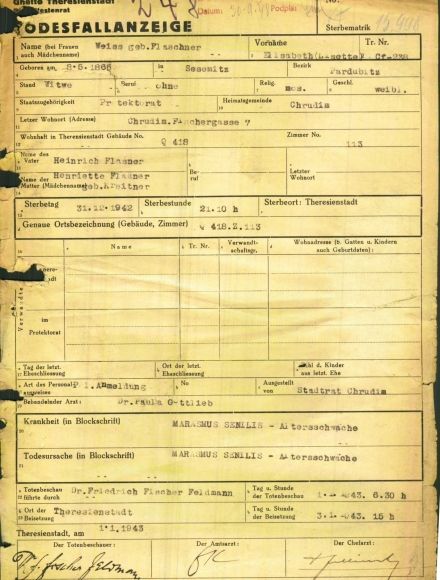 Ghetto Theresienstadt
TODESFALLANZEIGE
Datum:
Podpis:
No.:
Sterbematrik
Name (bei Frauen auch Mädchenname) Weiss geb. Flaschner Vorname Elisabeth Tr. Nr. Cr-228
Geboren am 8.5.1866 in Sesemitz Bezirk Pardubitz
Stand Witwe Beruf ohne Relig. mos. Geschl. weibl.
Staatszugehörigkeit Pr tektorat Heimatsgemeinde Chrudim
Letzer Wohnort (Adresse) Chrudim. F schergasse 7
Wohnhaft in Theresienstadt Gebäude No. Q 418 Zimmer No. 113
Name des Vater Heinrich Flasner Be- ruf Letzter Wohnort
Name der Mutter (Mädchenname) Henriette Flasner geb. Kreitner
Sterbetag 31.12.1942 Sterbestunde 21.10 h Sterbeort: Theresienstadt
Genaue Ortsbezeichnung (Gebäude, Zimmer) Q 418.Z.113
Name Tr. Nr. Verwandt- schaftsgr. Wohnadresse (b. Gatten u. Kindern auch Geburtdaten):
Verwandte
im Protektorat
Tag der letzt. Eheschliessung Ort der letzt. Eheschliessung Zahl d. Kinder aus letzt. Ehe
Art des Personal- ausweises P.i.Anmeldung No Ausgestellt von Stadtrat Chrudim
Behandelnder Arzt: Dr. Paula Gottlieb
Krankheit (in Blockschrift) MARASMUS SENILIS - Altersschwäche
Todesursache (in Blockschrift) MARASMUS SENILIS - Altersschwäche
Totenbeschau führte durch Dr. Friedrich Fischer Feldmann Tag u. Stunde der Totenbeschau 943. 6.30 h
Ort der Beisetzung Theresienstadt Tag u. Stunde der Beisetzung 3.1. 943. 15 h
Theresienstadt, am 1.1.1943
Der Totenbeschauer: Der Amtsarzt: Der Chefarzt: